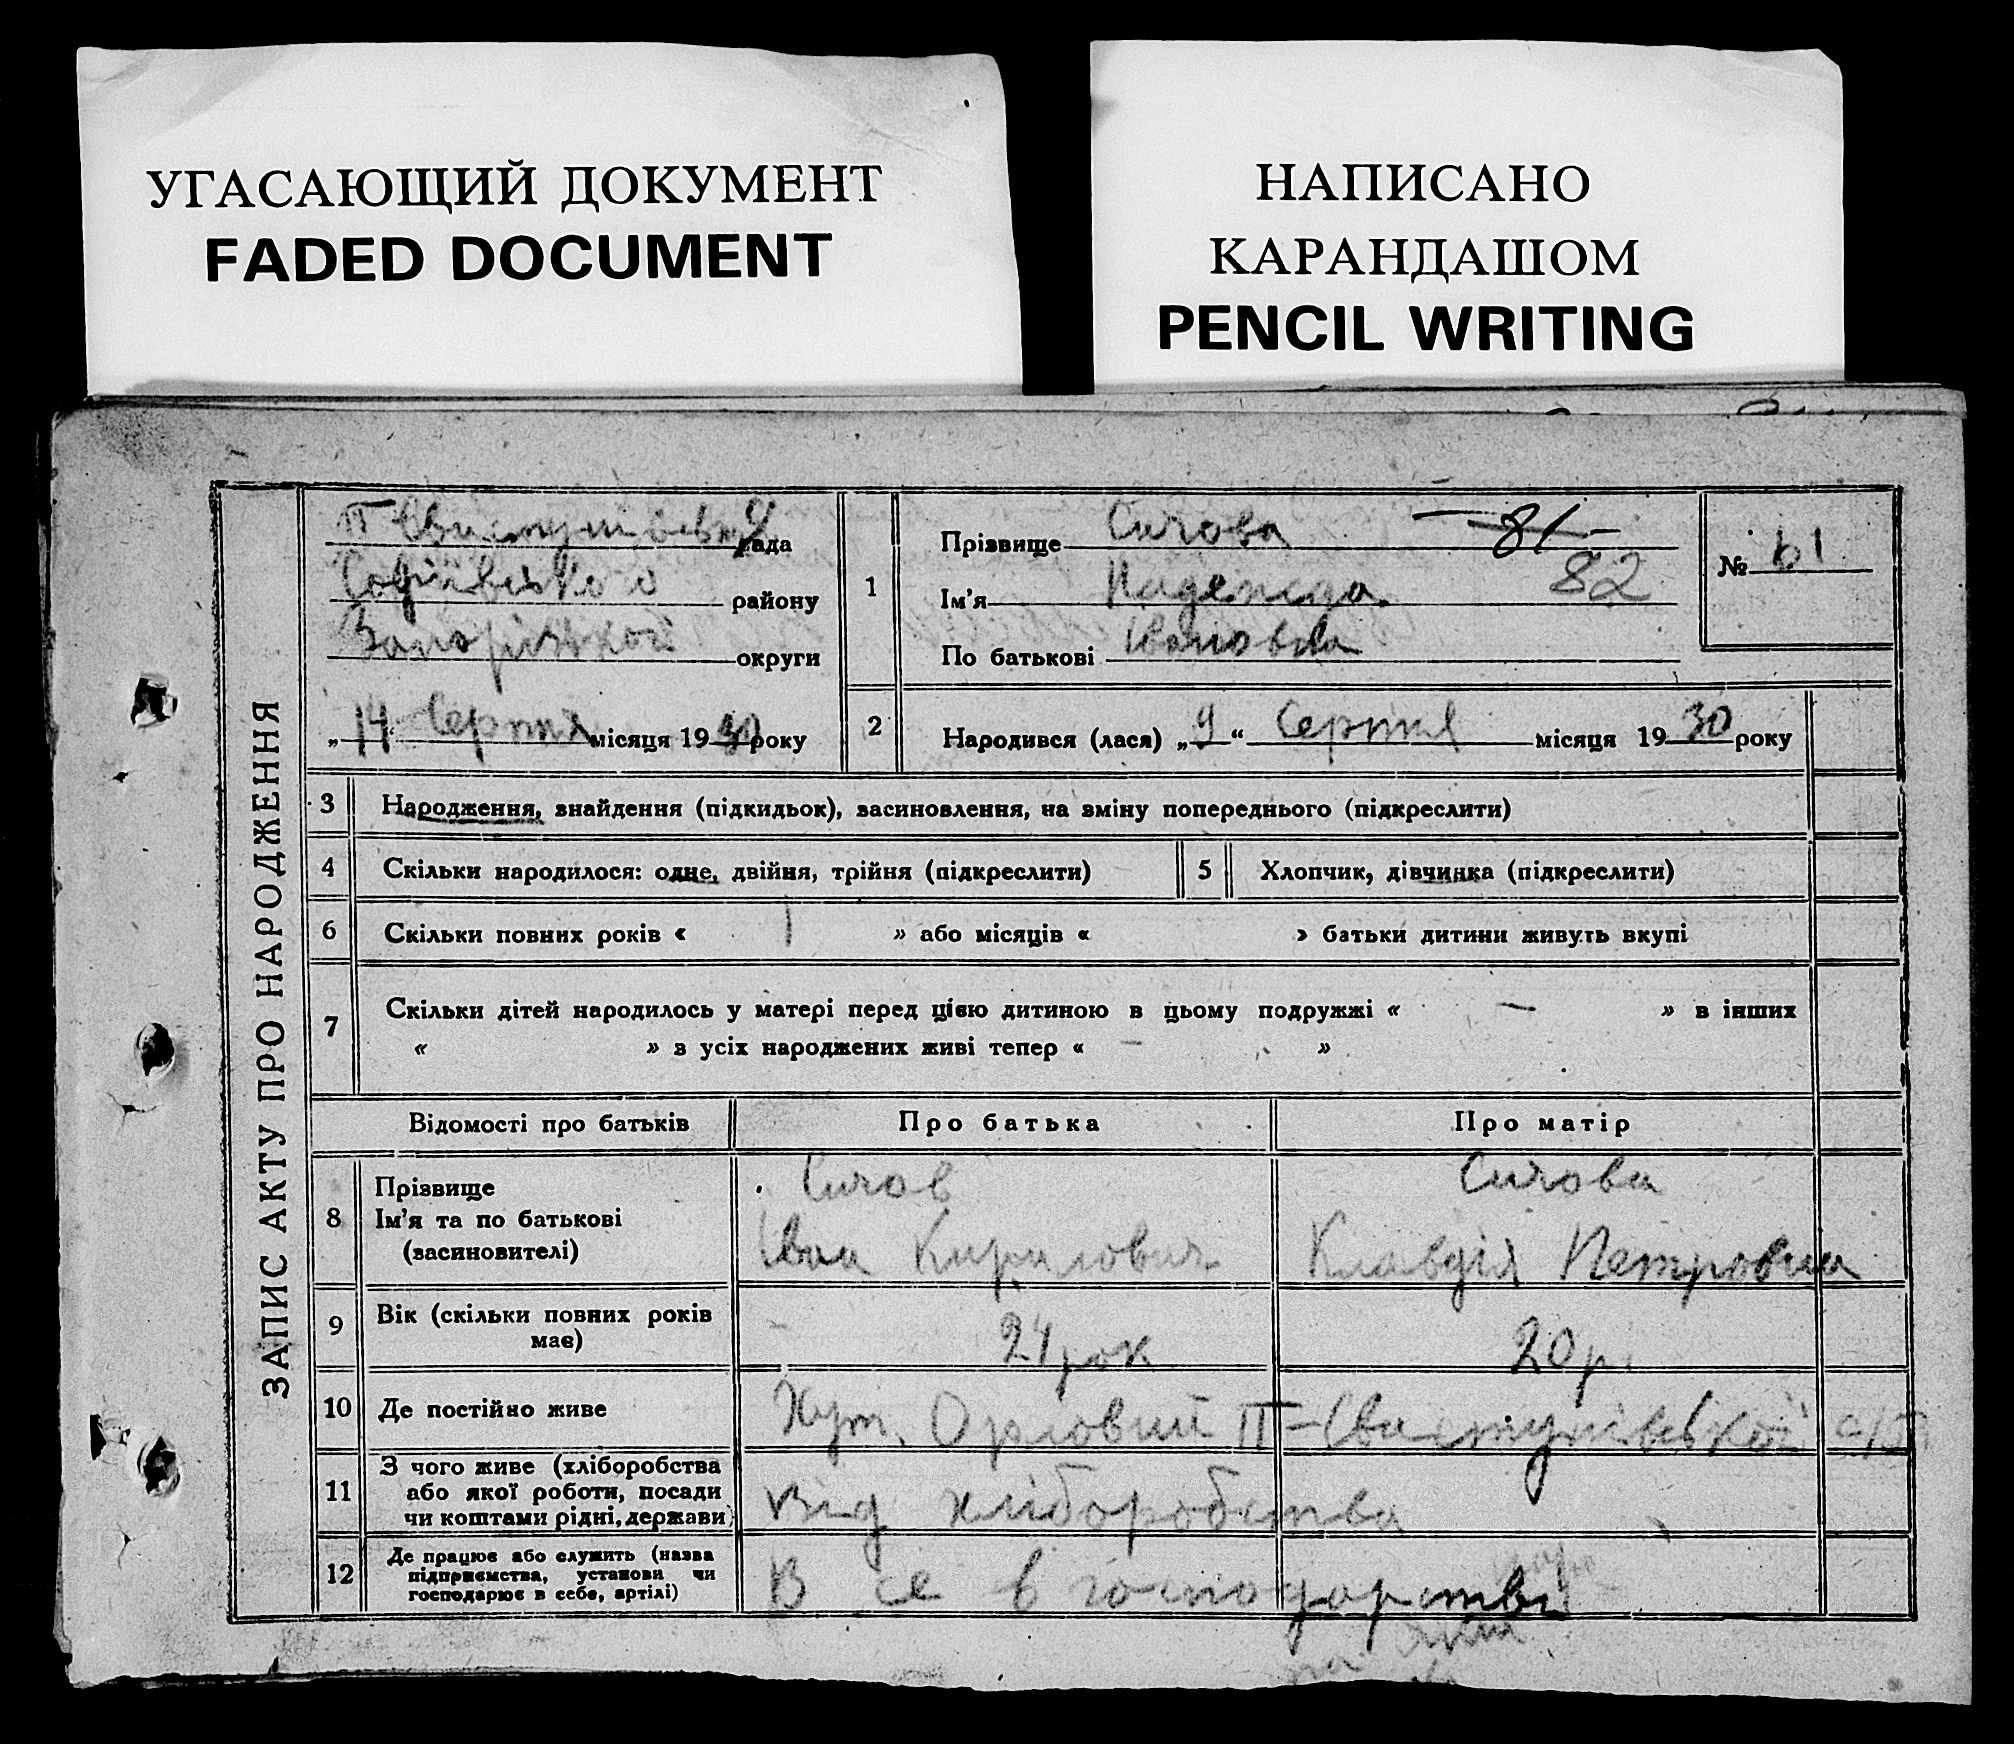 УГАСАЮЩИЙ ДОКУМЕНТ
FADED DOCUMENT
НАПИСАНО
КАРАНДАШОМ
PENCIL WRITING
ЗАПИС АКТУ ПРО НАРОДЖЕННЯ
II Свистунівська рада
Софіївького району
Запоріжкої округи
„14“ Серпня місяця 1930 року
1
Прізвище Сичова
81
Ім'я Надежда
82
По батькові Івановна
№ 61
2
Народився (лася) „9“ Серпня місяця 1930 року
3 Народження, знайдення (підкидьок), засиновлення, на зміну попереднього (підкреслити)
4 Скільки народилося: одне, двійня, трійня (підкреслити)
5 Хлопчик, дівчинка (підкреслити)
6 Скільки повних років « 1 » або місяців « » батьки дитини живуть вкупі
7 Скільки дітей народилось у матері перед цією дитиною в цьому подружжі « — » в інших
« » з усіх народжених живі тепер « — »
Відомості про батьків Про батька Про матір
8 Прізвище
Ім'я та по батькові
(засиновителі)
Сичов
Іван Кирилович
Сичова
Клавдія Петровна
9 Вік (скільки повних років
має)
21 рок
20 р.
10 Де постійно живе Хут. Орловий II-Свистунівської с/р
11 З чого живе (хліборобства
або якої роботи, посади
чи коштами рідні, держави)
Від хліборобства
12 Де працює або служить (назва
підприємства, установи чи
господарює в себе, артілі)
В се в господарстві